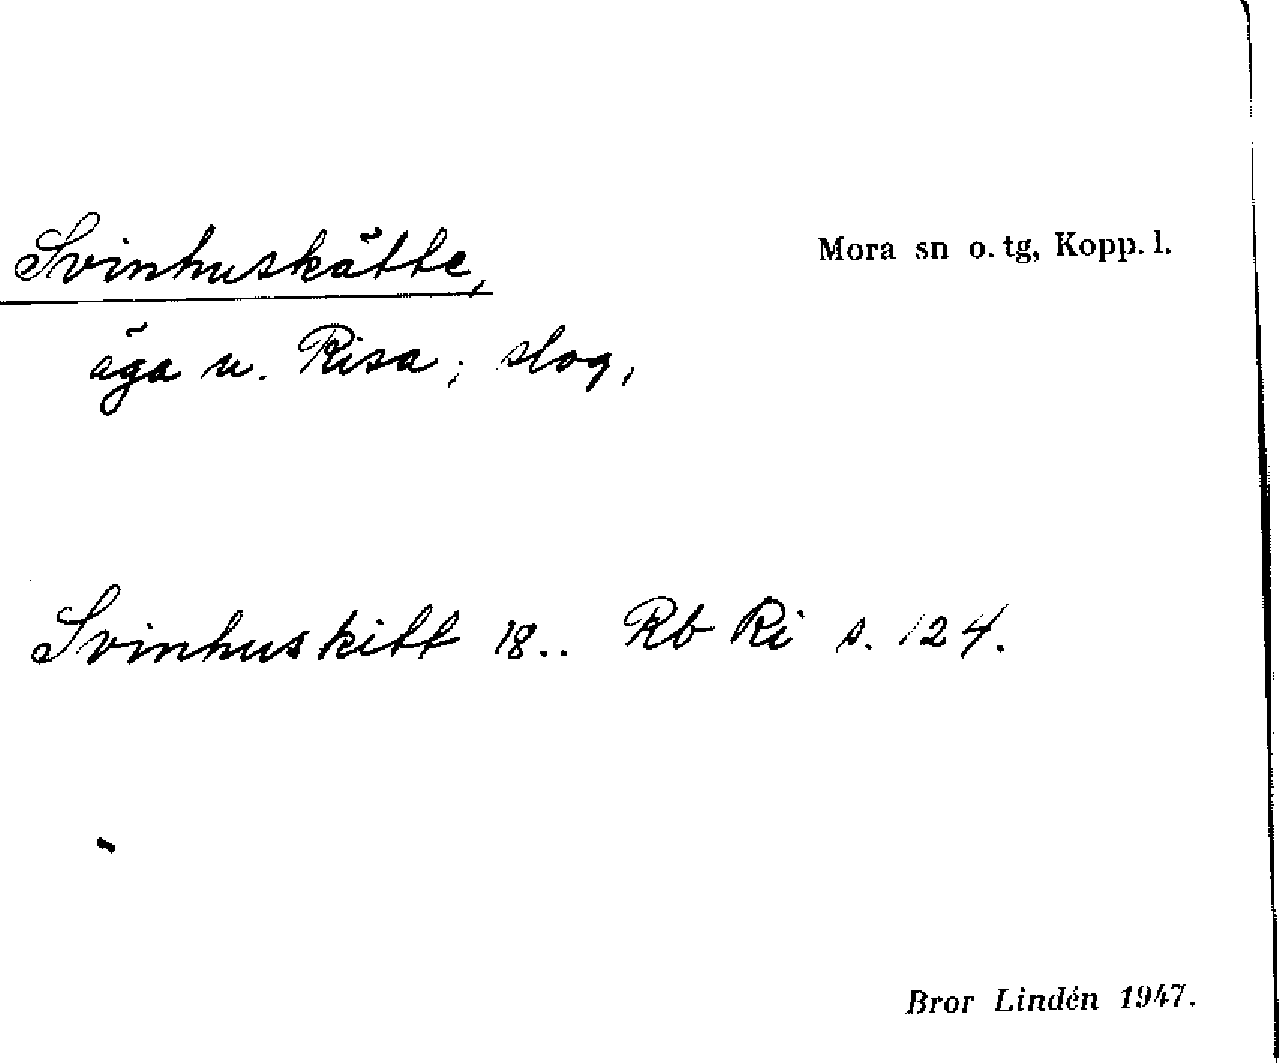 Svinhuskätte,
Mora sn o. tg, Kopp. l.
äga u. Risa; slog,
Svinhuskitt 18.. Rb Ri s. 124.
Bror Lindén 1947.